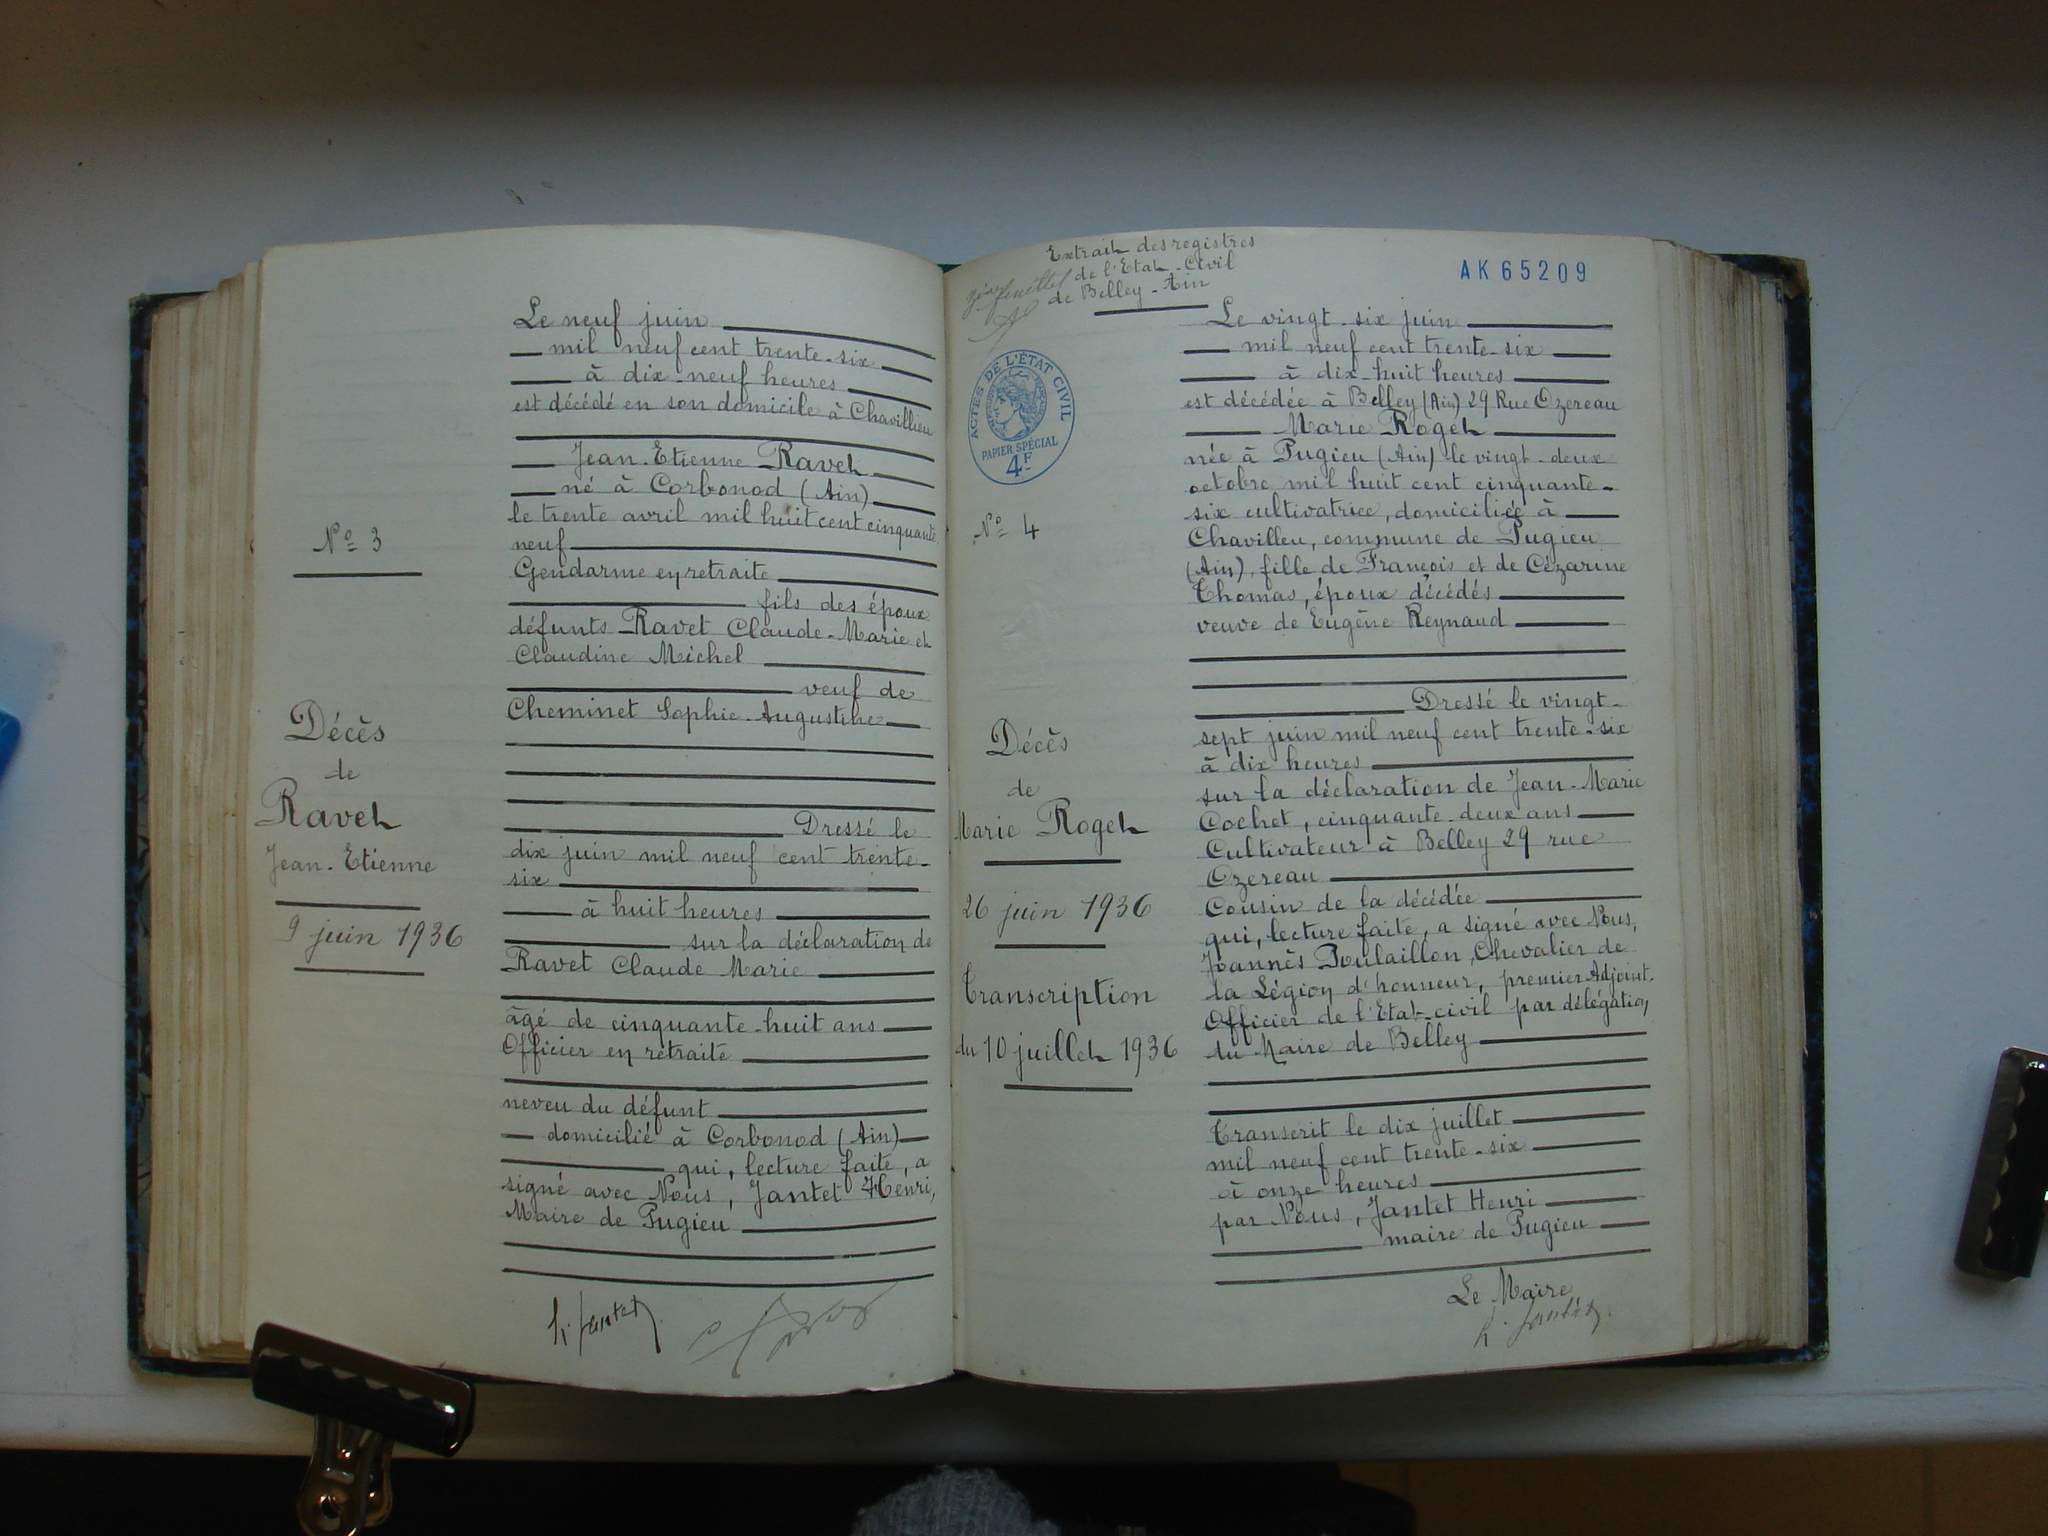 Nº 3
Décès
de
Ravet
Jean-Etienne
9 juin 1936
Le neuf juin
mil neuf cent trente-six
à dix-neuf heures
est décédé en son domicile à Chavillieu
Jean-Etienne Ravet
né à Corbonod (Ain)
le trente avril mil huit cent cinquante
neuf
Gendarme en retraite
fils des époux
défunts Ravet Claude-Marie et
Claudine Michel
veuf de
Cheminet Sophie-Augustine
Dressé le
dix juin mil neuf cent trente-
six
à huit heures
sur la déclaration de
Ravet Claude Marie
âgé de cinquante-huit ans
Officier en retraite
neveu du défunt
domicilié à Corbonod (Ain)
qui, lecture faite, a
signé avec Nous, Jantet Henri,
Maire de Pugieu
h. Jantet
Extrait des registres
de l'Etat-Civil
de Belley-Ain
feuillet
AK 65209
ACTES DE L'ÉTAT CIVIL
PAPIER SPÉCIAL
4F
Nº 4
Décès
de
Marie Roget
26 juin 1936
Transcription
du 10 juillet 1936
Le vingt-six juin
mil neuf cent trente-six
à dix-huit heures
est décédée à Belley (Ain) 29 Rue Ozereau
Marie Roget
née à Pugieu (Ain) le vingt-deux
octobre mil huit cent cinquante-
six cultivatrice, domiciliée à
Chavilleu, commune de Pugieu
(Ain), fille de François et de Cézarine
Thomas, époux décédés
veuve de Eugène Reynaud
Dressé le vingt-
sept juin mil neuf cent trente-six
à dix heures
sur la déclaration de Jean-Marie
Cochet, cinquante-deux ans
Cultivateur à Belley 29 rue
Ozereau
Cousin de la décédée
qui, lecture faite, a signé avec Nous,
Joannès Poulaillon, Chevalier de
la Légion d'honneur, premier Adjoint.
Officier de l'Etat-civil par délégation
du Maire de Belley
Transcrit le dix juillet
mil neuf cent trente-six
à onze heures
par Nous, Jantet Henri
maire de Pugieu
Le Maire
h. Jantet